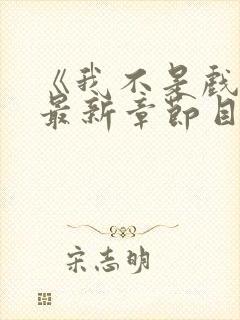 《我不是戏
最新章节目
宋志明